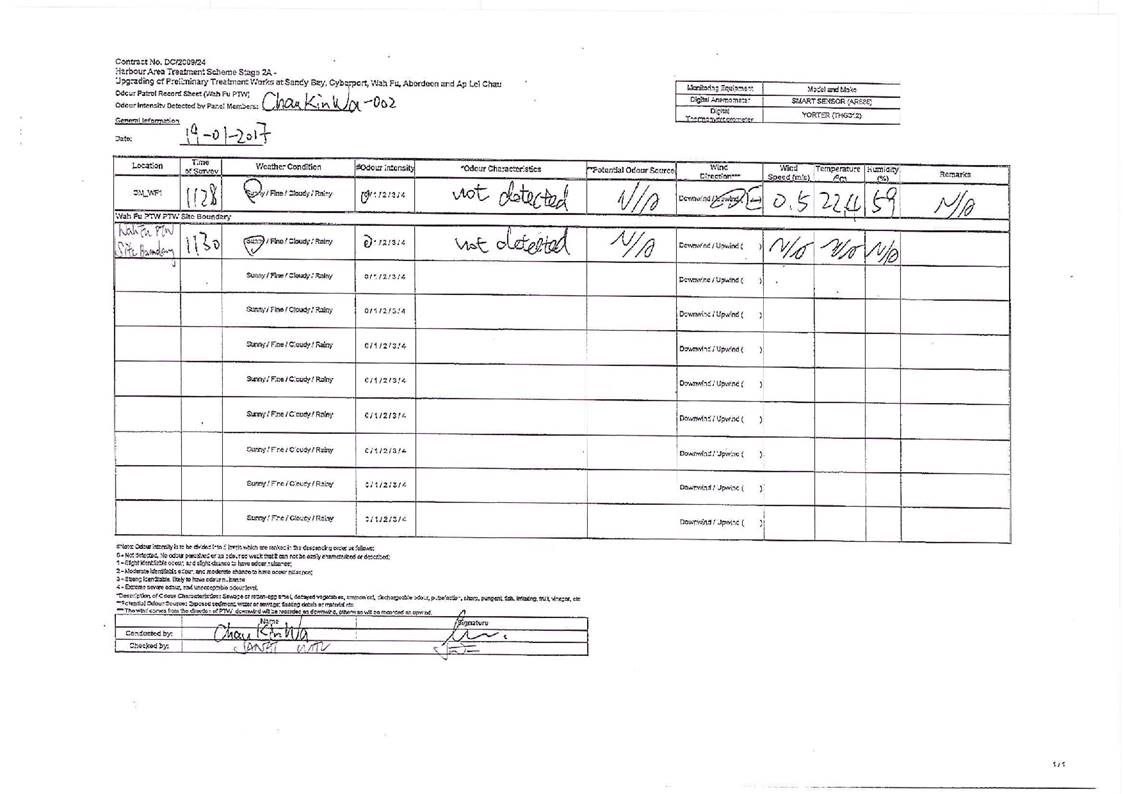 Contract No. DC/2009/24
Harbour Area Treatment Scheme Stage 2A -
Upgrading of Preliminary Treatment Works at Sandy Bay, Cyberport, Wah Fu, Aberdeen and Ap Lei Chau
Odour Patrol Record Sheet (Wah Fu PTW)
Odour Intensity Detected by Panel Members: Chan Kin Wa -002
General Information
Date: 19-01-2017
Monitoring Equipment Model and Make
Digital Anemometer SMART SENSOR (AR826)
Digital Thermohygrometer YORTER (THG312)
Location Time of Survey Weather Condition #Odour Intensity *Odour Characteristics **Potential Odour Source Wind Direction*** Wind Speed (m/s) Temperature (°C) Humidity (%) Remarks
OM_WF1 1128 Sunny / Fine / Cloudy / Rainy 0/1/2/3/4 not detected N/A Downwind / Upwind (E) 0.5 22.4 59 N/A
Wah Fu PTW PTW Site Boundary
Wah Fu PTW Site Boundary 1130 Sunny / Fine / Cloudy / Rainy 0/1/2/3/4 not detected N/A Downwind / Upwind ( ) N/A N/A N/A
Sunny / Fine / Cloudy / Rainy 0/1/2/3/4 Downwind / Upwind ( )
Sunny / Fine / Cloudy / Rainy 0/1/2/3/4 Downwind / Upwind ( )
Sunny / Fine / Cloudy / Rainy 0/1/2/3/4 Downwind / Upwind ( )
Sunny / Fine / Cloudy / Rainy 0/1/2/3/4 Downwind / Upwind ( )
Sunny / Fine / Cloudy / Rainy 0/1/2/3/4 Downwind / Upwind ( )
Sunny / Fine / Cloudy / Rainy 0/1/2/3/4 Downwind / Upwind ( )
Sunny / Fine / Cloudy / Rainy 0/1/2/3/4 Downwind / Upwind ( )
Sunny / Fine / Cloudy / Rainy 0/1/2/3/4 Downwind / Upwind ( )
#Note: Odour intensity is to be divided into 5 levels which are ranked in the descending order as follows:
0 - Not detected. No odour perceived or an odour so weak that it can not be easily characterised or described;
1 - Slight identifiable odour, and slight chance to have odour nuisance;
2 - Moderate identifiable odour, and moderate chance to have odour nuisance;
3 - Strong identifiable, likely to have odour nuisance
4 - Extreme severe odour, and unacceptable odour level.
*Description of Odour Characteristics: Sewage or rotten-egg smell, decayed vegetables, ammonical, dischargeable odour, putrefaction, sharp, pungent, fish, irritating, fruit, vinegar, etc
**Potential Odour Sources: Exposed sediment, water or sewage; floating debris or material etc
*** The wind comes from the direction of PTW, downwind will be recorded as downwind, otherwise will be recorded as upwind.
Name Signature
Conducted by: Chan Kin Wa
Checked by:
1/1